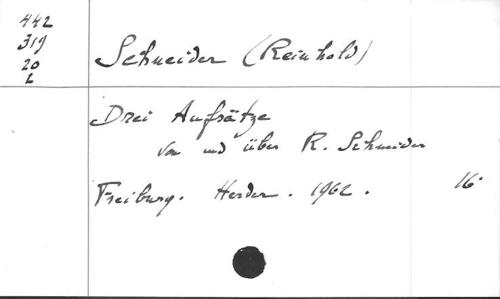 442
319
20
L
Schneider (Reinhold)
Drei Aufsätze
von und über R. Schneider
Freiburg. Herder. 1962. 16°